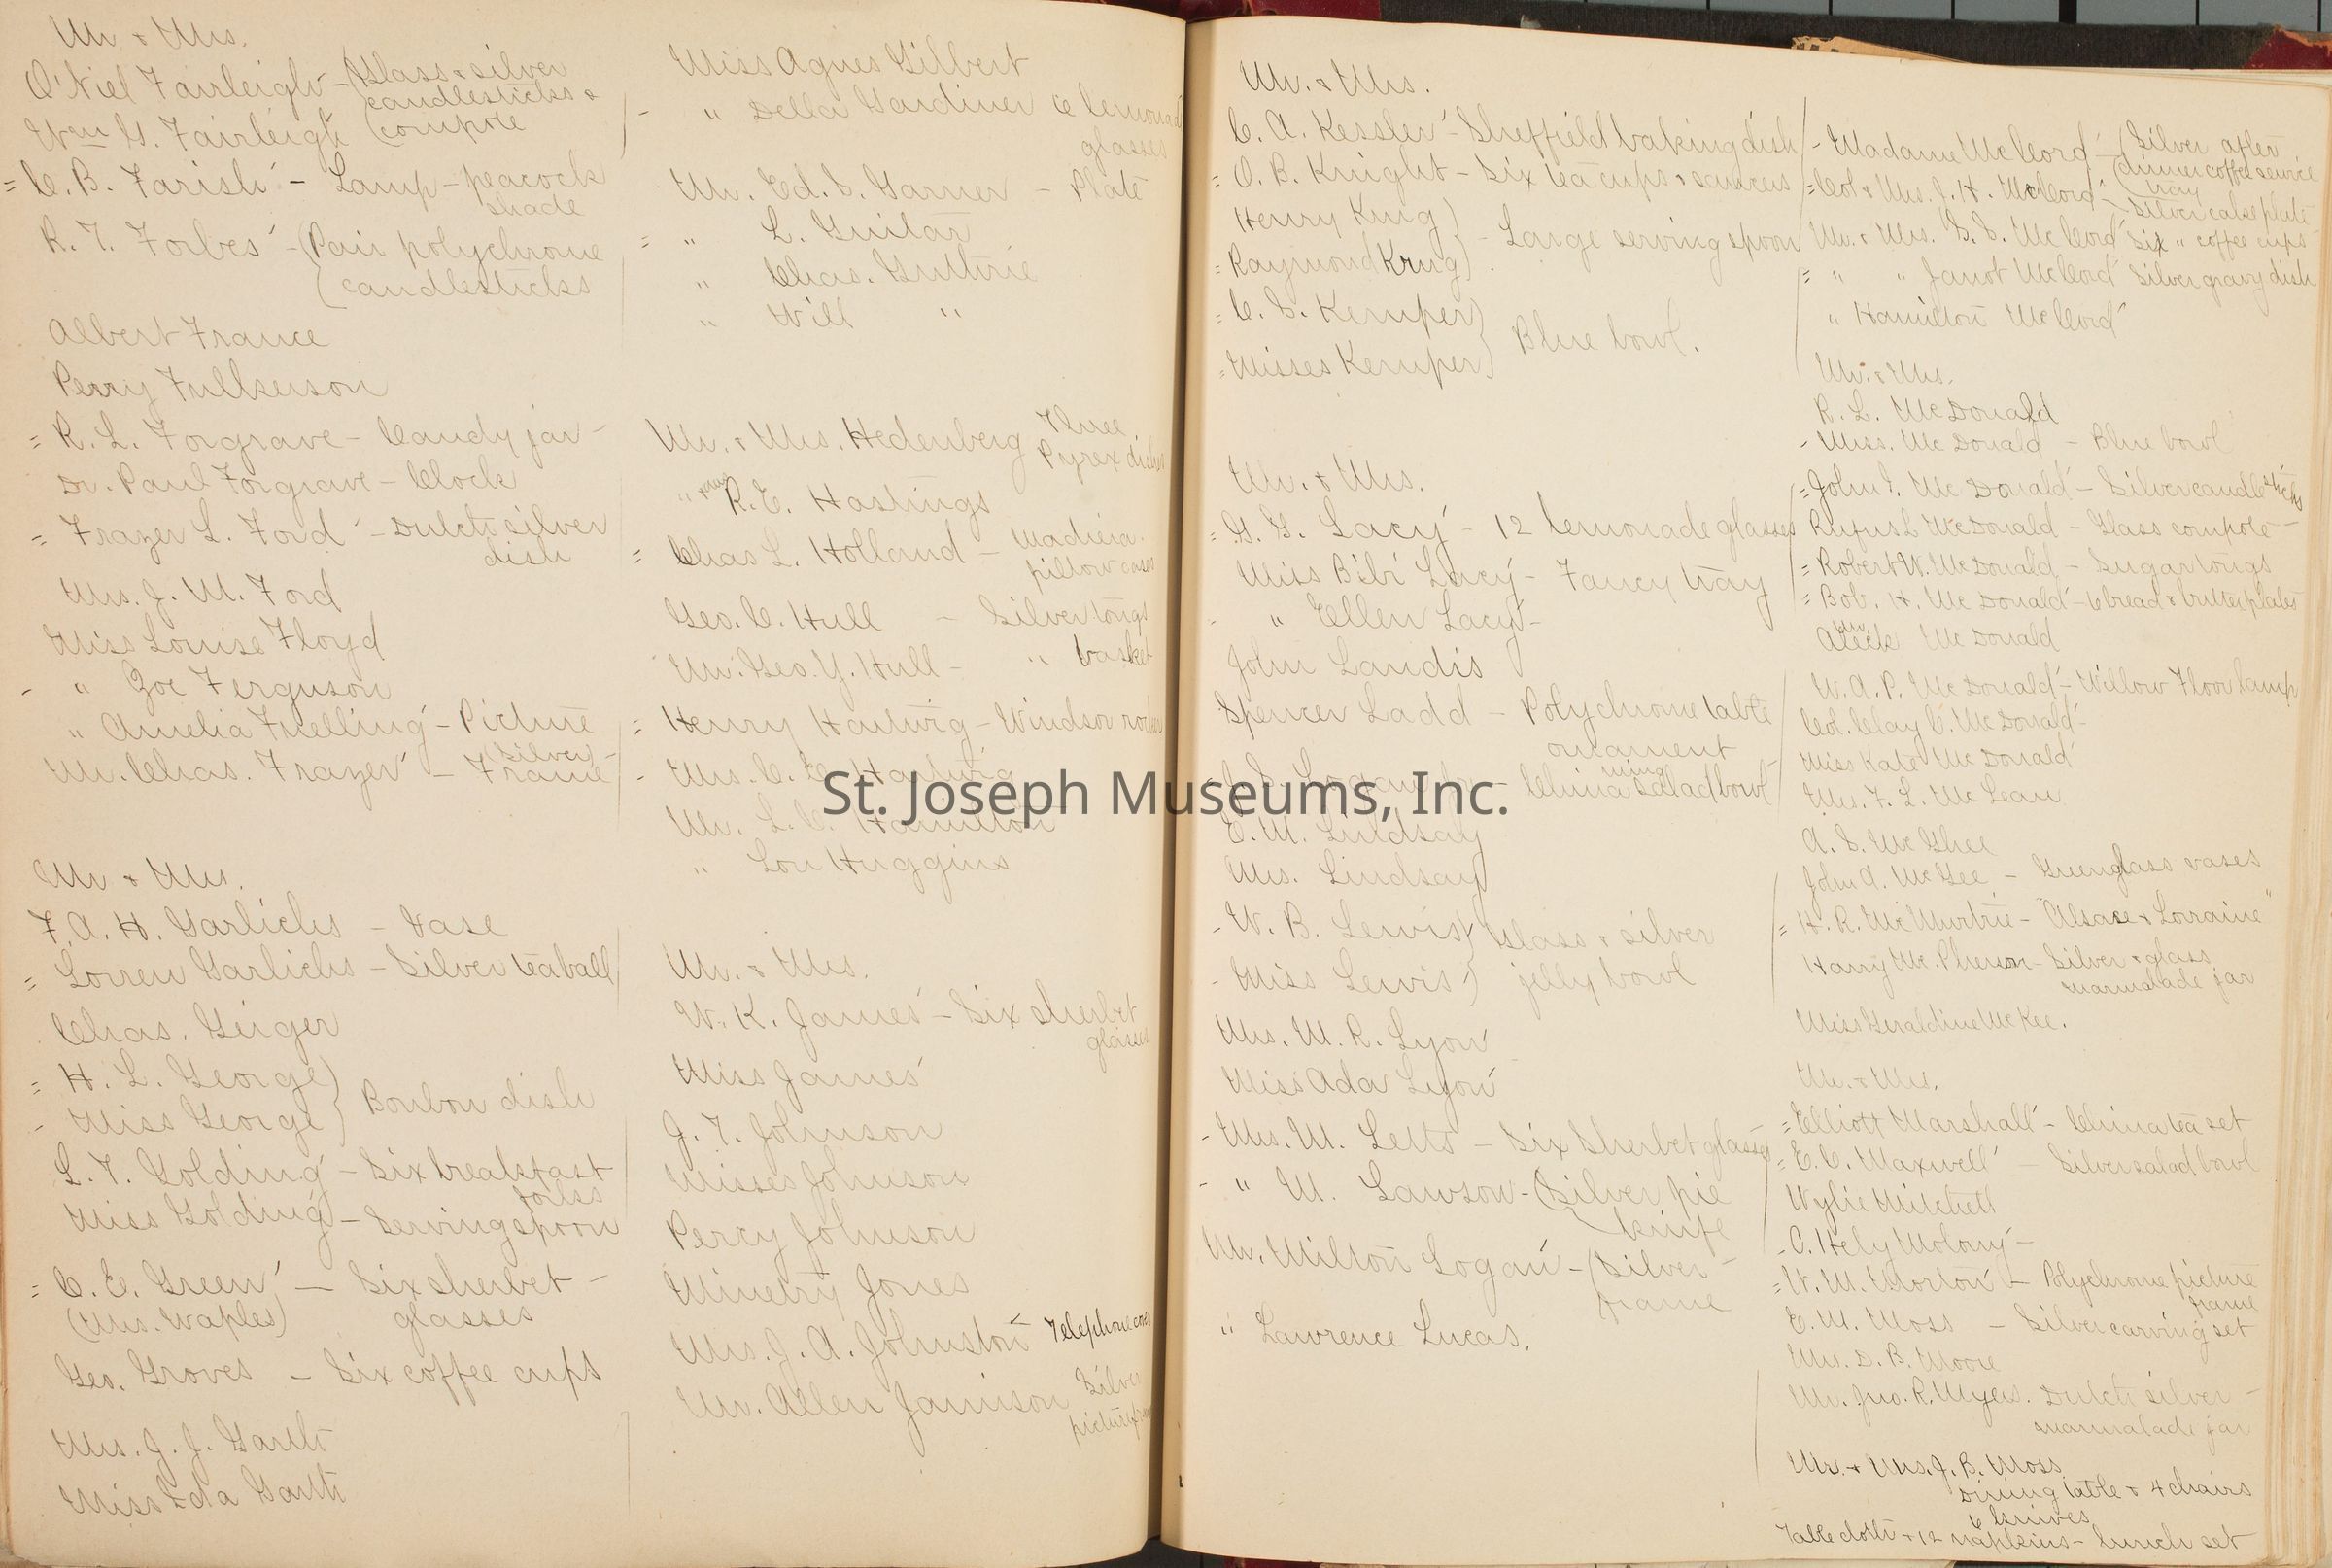 Mr. & Mrs.
O'Niel Fairleigh - (Glass & silver
candlesticks &
Wm G. Fairleigh (compote
= C. B. Farish - Lamp - peacock
shade
R. T. Forbes - (Pair polychrome
(candlesticks
Albert France
Perry Fulkerson
= R. L. Forgrave - Candy jar -
Dr. Paul Forgrave - Clock
= Frazer L. Ford - Dutch silver
dish
Mrs. J. M. Ford
Miss Louise Floyd
- " Zoe Ferguson
" Amelia Fuelling - Picture
Mr. Chas. Frazer - Silver -
Frame
Mr & Mrs.
F. A. H. Garlichs - Vase
= Lorren Garlichs - Silver teaball
Chas. Geiger
= H. L. George)
- Miss George) Bonbon dish
L. T. Golding - Six breakfast
forks
Miss Golding - Serving spoon
= C. E. Green - Six sherbet -
(Mrs. Waples) glasses
Geo. Groves - Six coffee cups
Mrs. J. J. Garth
Miss Ida Garth
Miss Agnes Gilbert
- " Della Gardiner 6 lemonade
glasses
Mr. Ed. S. Garner - Plate
= " L. Guitar
" Chas. Guthrie
" Will "
Mr. & Mrs. Hedenberg Three
Pyrex dishes
" & Mrs R. E. Hastings
= Chas L. Holland - Madiera
pillow cases
Geo. C. Hull - Silver tongs
Mr. Geo. Y. Hull - " basket
= Henry Hartwig - Windsor rocker
- Mrs. C. E. Hartwig
Mr. L. C. Hamilton
" Lou Huggins
Mr. & Mrs.
W. K. James - Six sherbet
glasses
Miss James
J. T. Johnson
Misses Johnson
Percy Johnson
Minetry Jones
Mrs. J. A. Johnston Telephone
Mr. Allen Jamison Silver
picture
Mr. & Mrs.
C. A. Kessler - Sheffield baking dish
= O. R. Knight - Six tea cups & saucers
Henry Krug)
= Raymond Krug) - Large serving spoon
= C. S. Kemper)
= Misses Kemper) Blue bowl.
Mr. & Mrs.
= G. G. Lacy - 12 lemonade glasses
Miss Bibi Lacy - Fancy tray
- " Ellen Lacy -
John Landis
Spencer Ladd - Polychrome table
ornament
Logan China salad bowl
E. M. Lindsay
Mrs. Lindsay
- W. B. Lewis) Glass & silver
- Miss Lewis) jelly bowl
Mrs. M. R. Lyon
Miss Ada Lyon
- Mrs. M. Letts - Six Sherbet glasses
- " M. Lawson - (Silver pie
knife
Mr. Milton Logan - (Silver -
frame
" Lawrence Lucas.
- Madame McCord - (Silver after
(dinner coffee service
tray
= Col. & Mrs. J. H. McCord - Silver cake plate
Mr. & Mrs. S. S. McCord Six " coffee cups
= " " Janot McCord Silver gravy dish
" Hamilton McCord
Mr. & Mrs.
R. L. McDonald
- Miss. McDonald - Blue bowl
= John S. McDonald - Silver candlesticks
Rufus L. McDonald - Glass compote -
= Robert W. McDonald - Sugar tongs
= Bob. H. McDonald - 6 bread & butter plates
McDonald
W. A. P. McDonald - Willow Floor lamp
Col. Clay C. McDonald -
Miss Kate McDonald
Mrs. F. L. McLean
A. S. McGhee
John A. McGee - Green glass vases
= H. R. McMurtrie - "Alsace & Lorraine"
Harry McPherson - Silver & glass
marmalade jar
Miss Geraldine McKee.
Mr. & Mrs.
= Elliott Marshall - China tea set
= E. C. Maxwell - Silver salad bowl
Wylie Mitchell
- C. Hely Molony -
= W. M. Morton - Polychrome picture
frame
E. M. Moss - Silver carving set
Mrs. D. B. Moore
Mr. Jno. R. Myers. Dutch silver -
marmalade jar
Mr. & Mrs. J. B. Moss
Dining table & 4 chairs
6 knives
Table cloth & 12 napkins - lunch set
St. Joseph Museums, Inc.